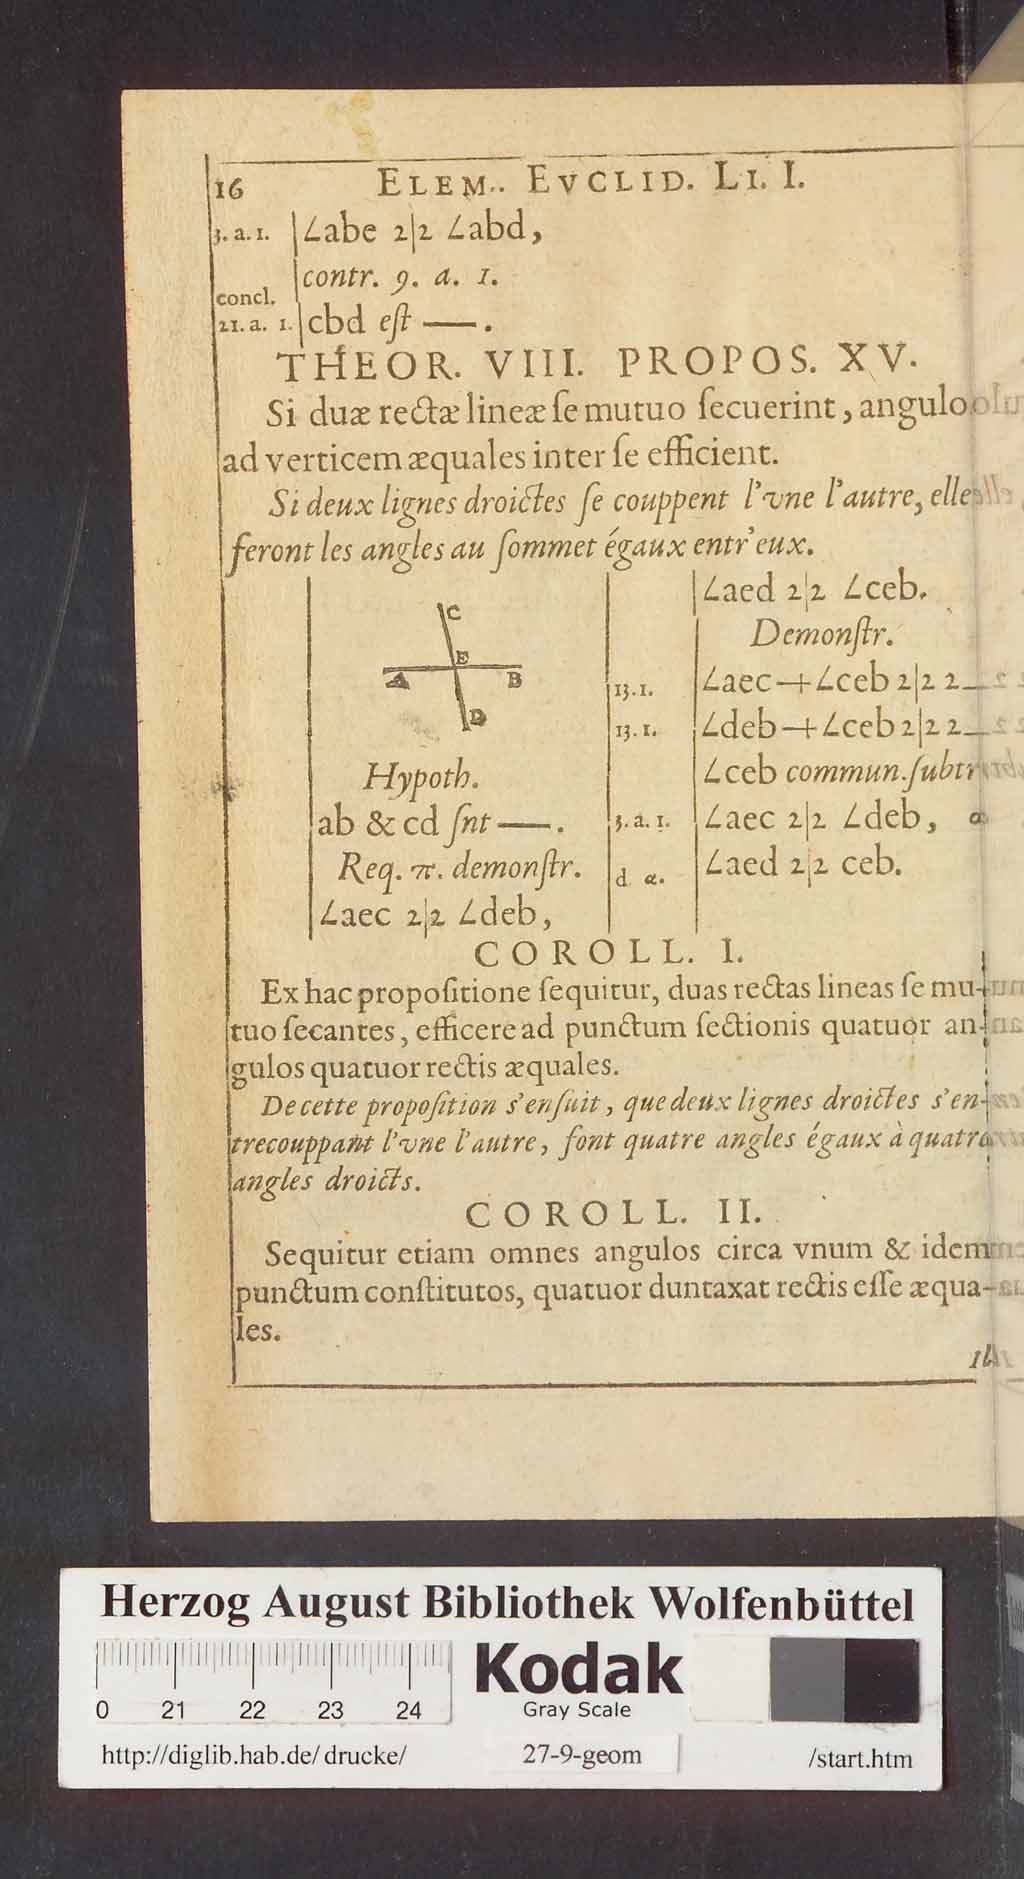 16 ELEM. EVCLID. LI. I.
3. a. 1. ∠abe 2|2 ∠abd,
contr. 9. a. 1.
concl.
21. a. 1. cbd eſt —.
THEOR. VIII. PROPOS. XV.
Si duæ rectæ lineæ ſe mutuo ſecuerint, angulo
ad verticem æquales inter ſe efficient.
Si deux lignes droictes ſe couppent l'vne l'autre, elles
feront les angles au ſommet égaux entr'eux.
C
E
A B
D
Hypoth.
ab & cd ſnt —.
Req. π. demonſtr.
∠aec 2|2 ∠deb,
∠aed 2|2 ∠ceb.
Demonſtr.
13. 1. ∠aec + ∠ceb 2|2 2
13. 1. ∠deb + ∠ceb 2|2 2
∠ceb commun. ſubtr
3. a. 1. ∠aec 2|2 ∠deb, α
d α. ∠aed 2|2 ceb.
COROLL. I.
Ex hac propoſitione ſequitur, duas rectas lineas ſe mu-
tuo ſecantes, efficere ad punctum ſectionis quatuor an-
gulos quatuor rectis æquales.
De cette propoſition s'enſuit, que deux lignes droictes s'en-
trecouppant l'vne l'autre, font quatre angles égaux à quatre
angles droicts.
COROLL. II.
Sequitur etiam omnes angulos circa vnum & idem
punctum conſtitutos, quatuor duntaxat rectis eſſe æqua-
les.
Herzog August Bibliothek Wolfenbüttel
0 21 22 23 24
Kodak
Gray Scale
http://diglib.hab.de/drucke/ 27-9-geom /start.htm